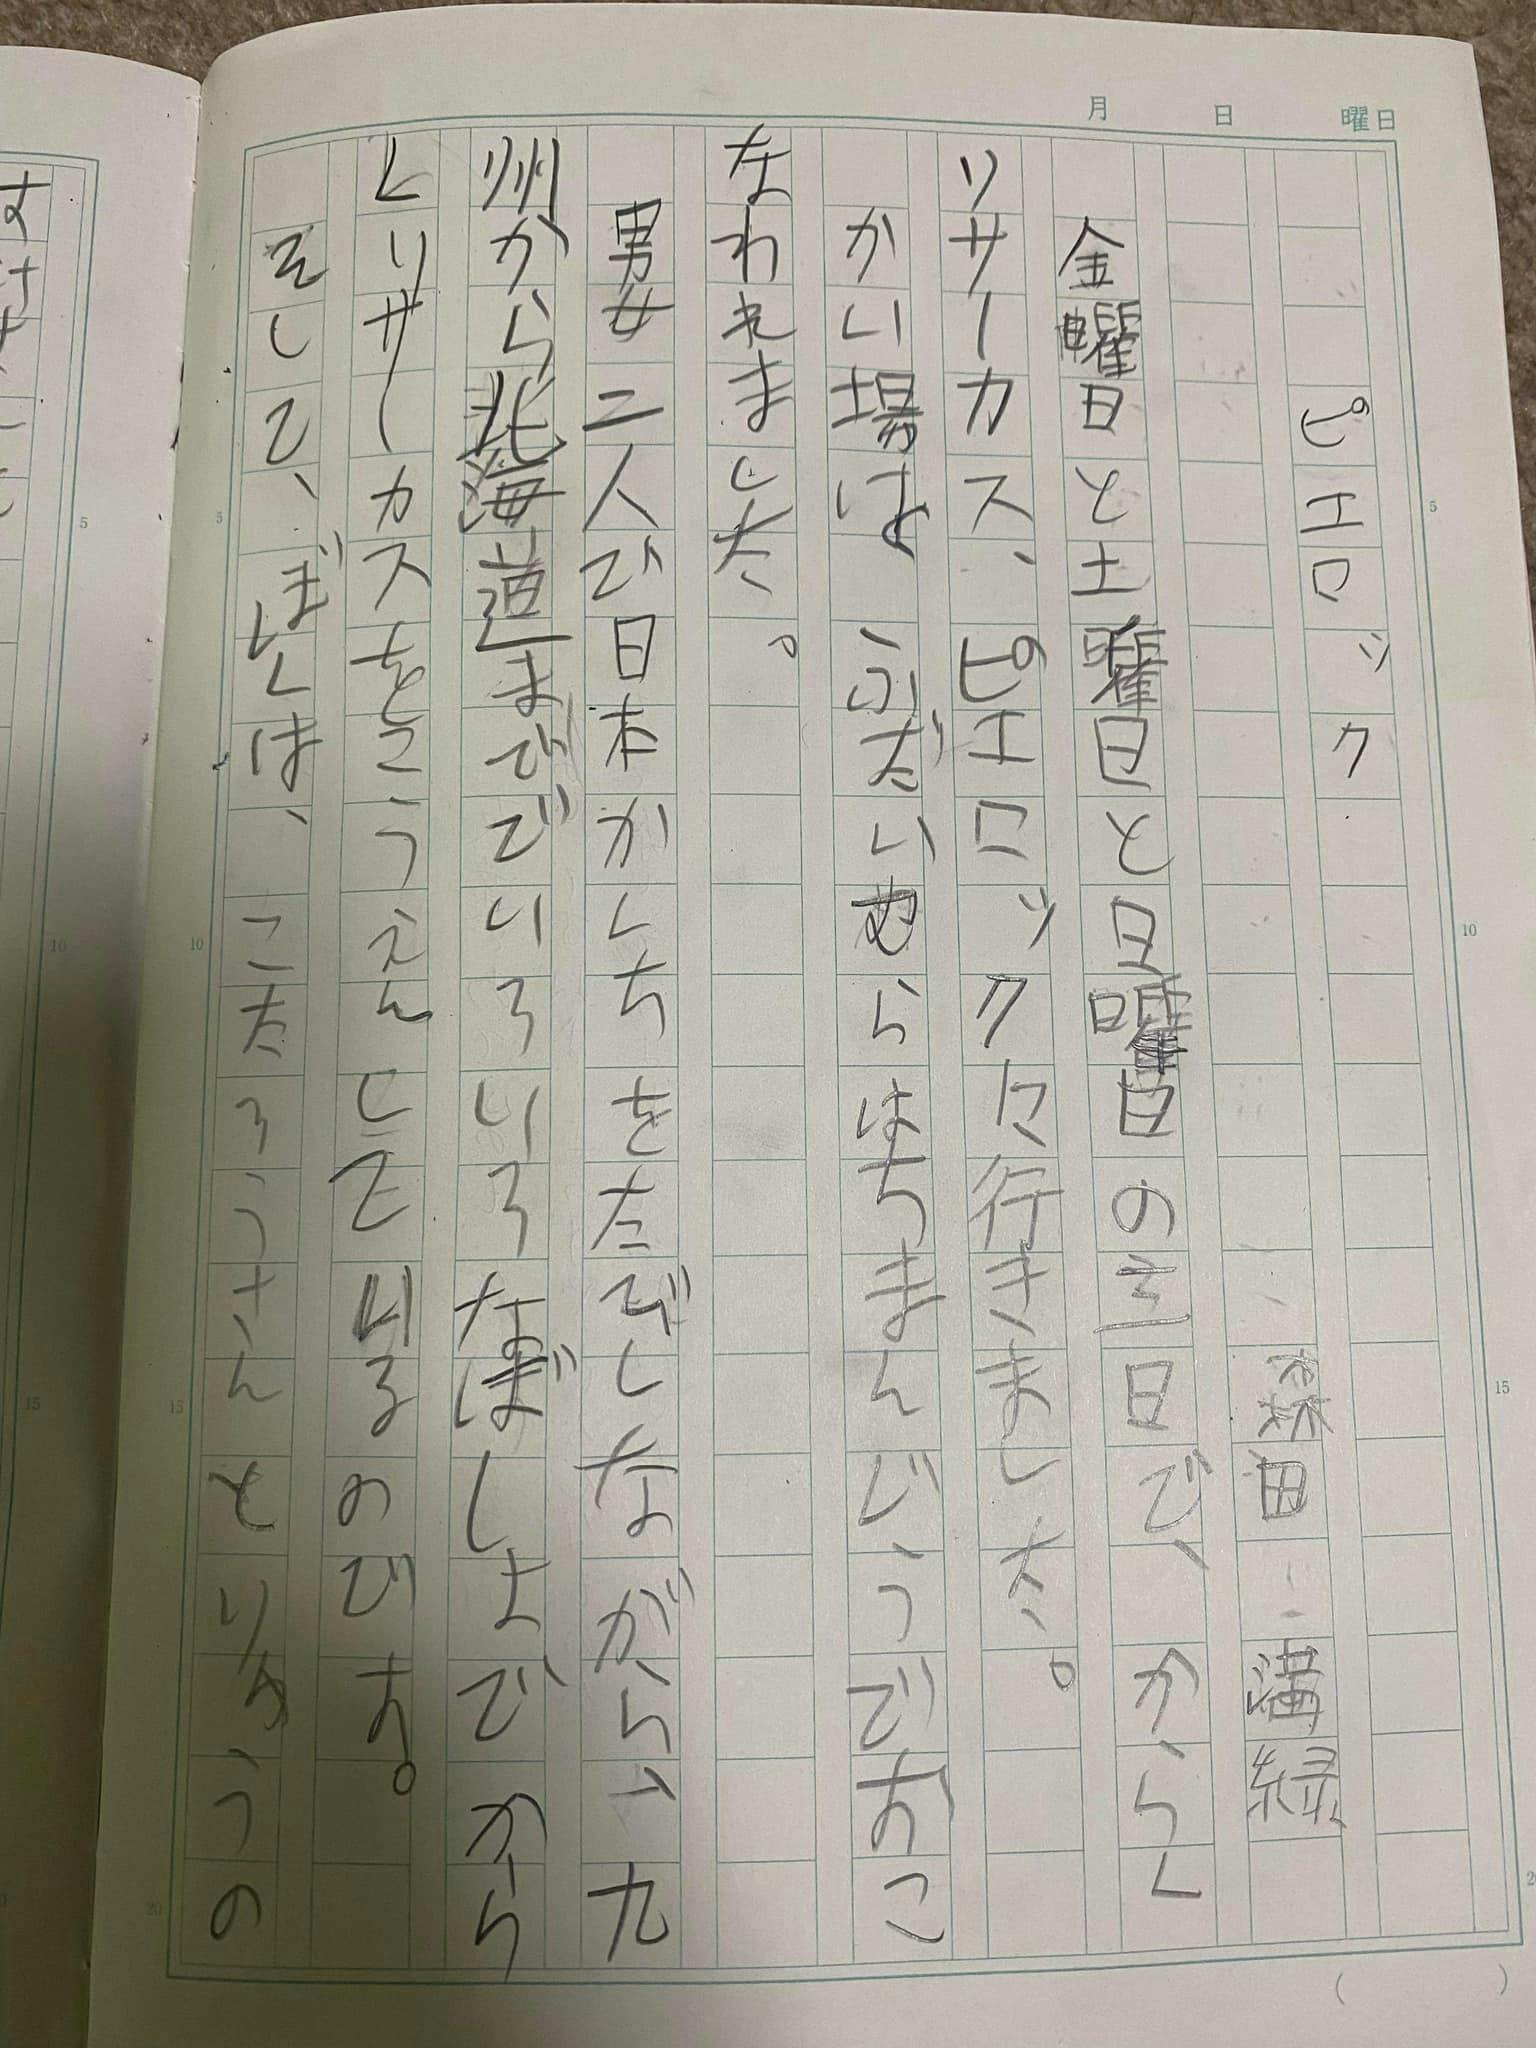 月 日 曜日
ピエロック
森田 溝緑
金曜日と土曜日と日曜日の三日で、からく
リサーカス、ピエロックに行きました。
かい場は ふだい むらはちまんじうでおこ
なわれました。
男女二人で日本かしちをたびしながら、九
州から北海道まででいろいろなばしょでから
くりサーカスをこうえんしているのです。
そして、ぼくは、こたろうさんとりゅうの
5
10
15
20
5
10
15
5
10
15
20